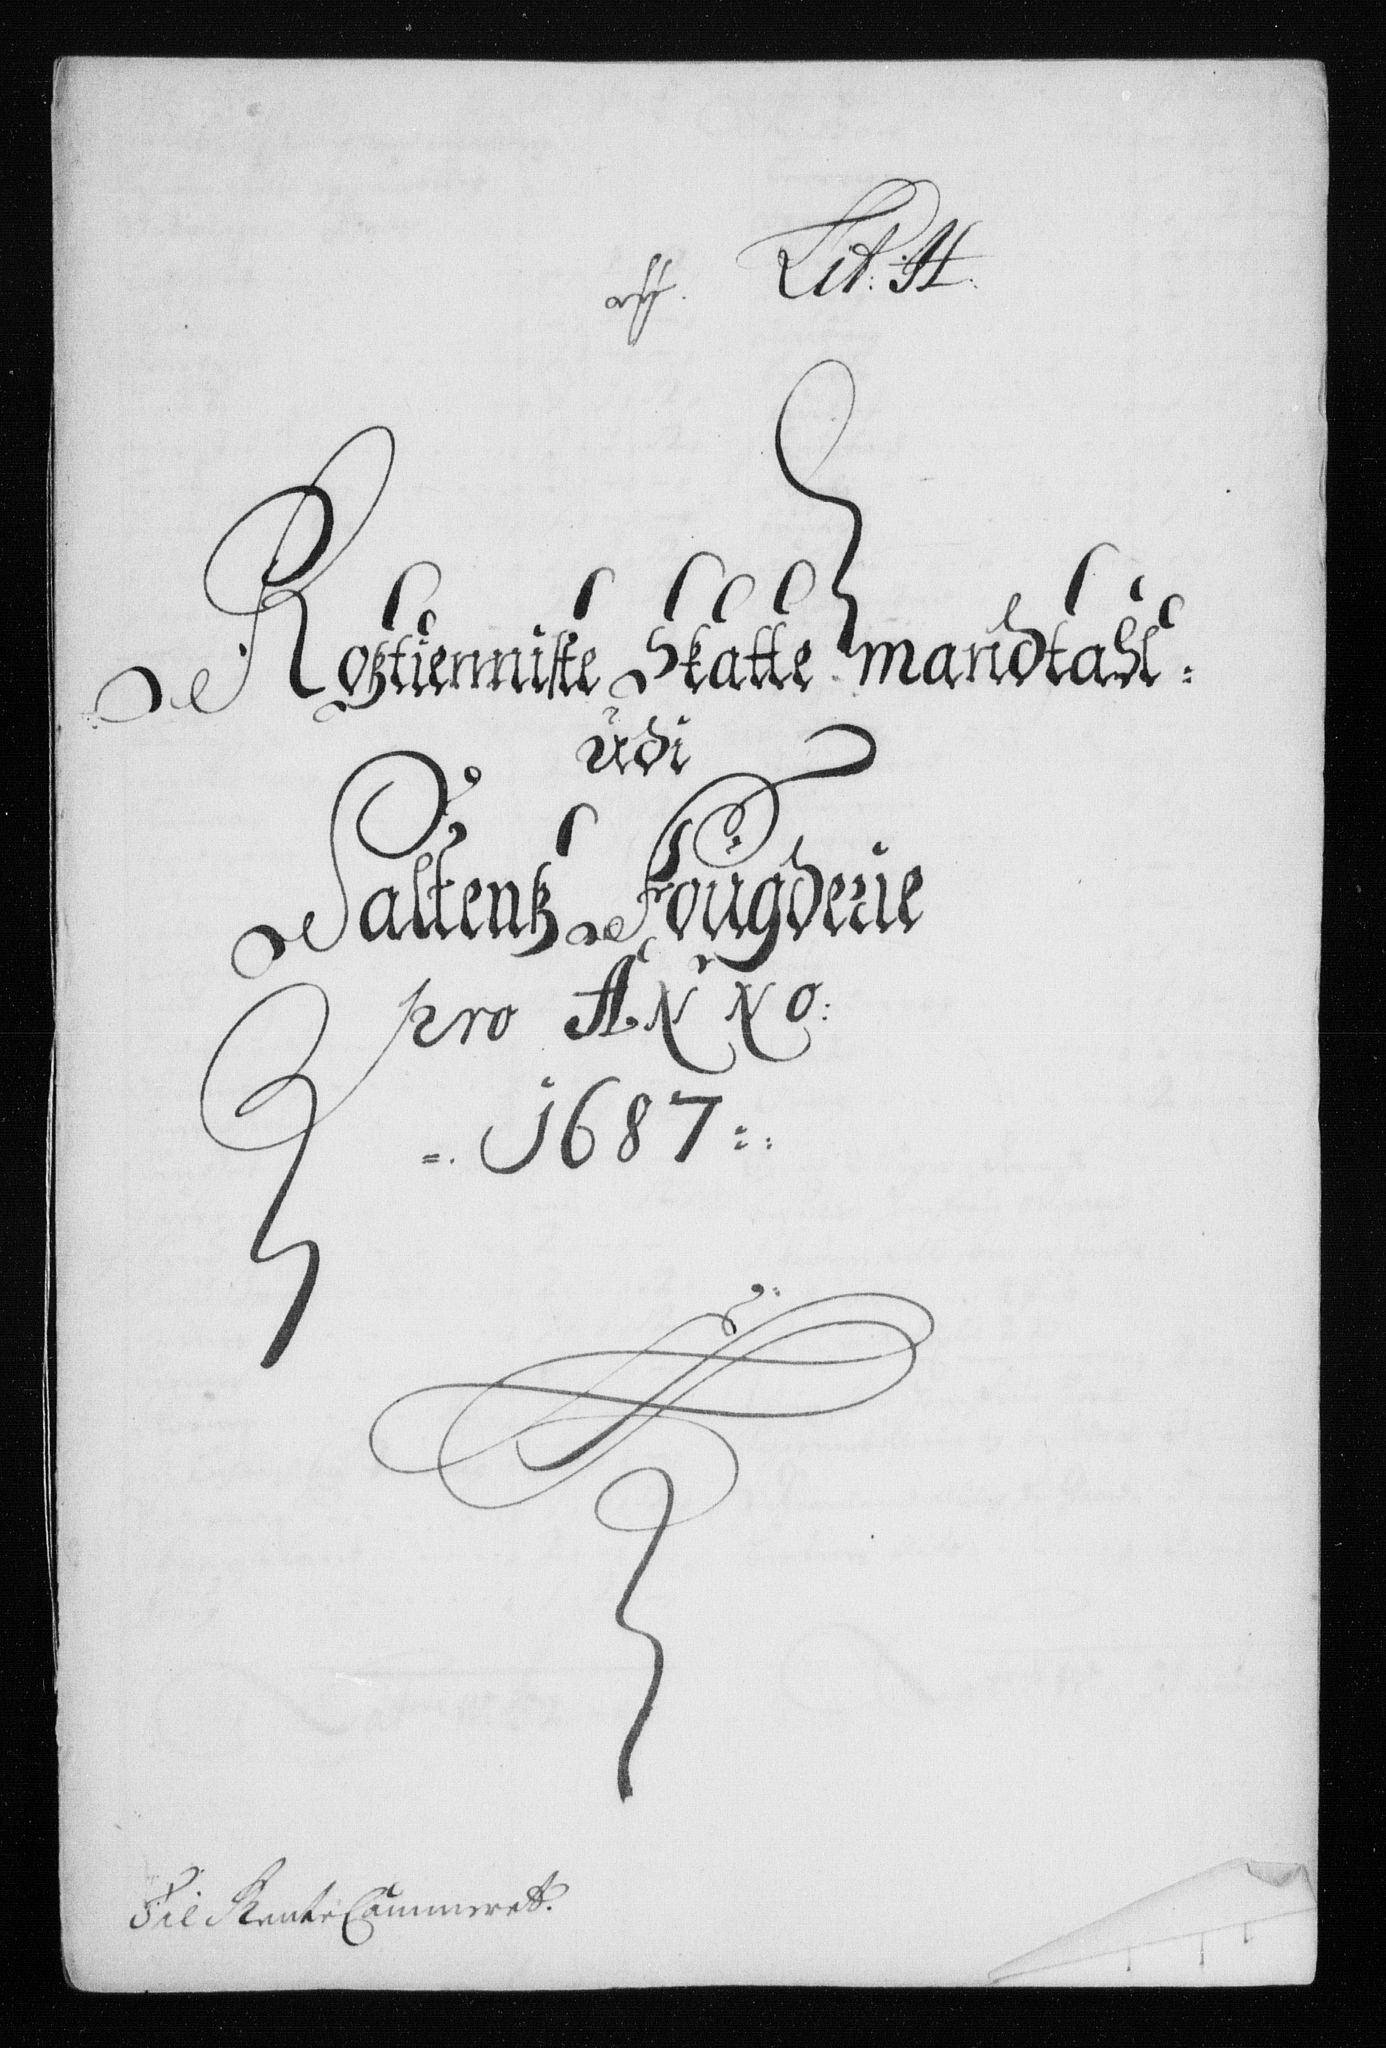 Lit: H.
Roßtienniste Skatte mandtahl
udi
Saltenß Fougderie
pro Anno:
1687
Til Rente Cammeret.